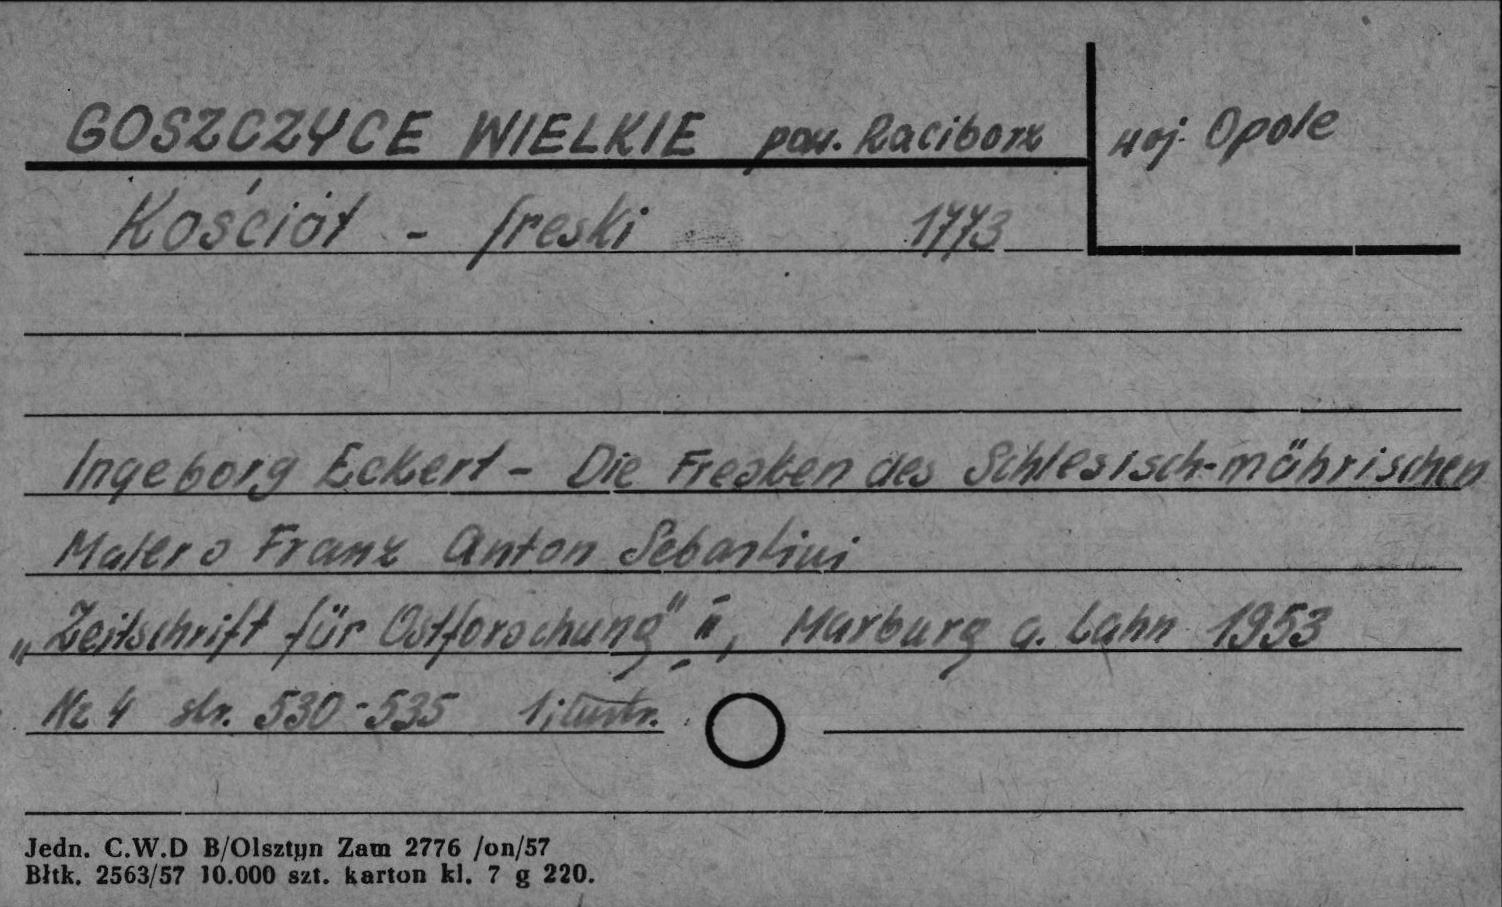 GOSZCZYCE WIELKIE pow. Racibórz woj. Opole
Kościół - freski 1773
Ingeborg Eckert - Die Fresken des Schlesisch-mährischen
Malers Franz Anton Sebastini
„Zeitschrift für Ostforschung" II, Marburg a. Lahn 1953
Nr 4 str. 530-535 1 ilustr.
Jedn. C.W.D B/Olsztyn Zam 2776 /on/57
Błtk. 2563/57 10.000 szt. karton kl. 7 g 220.